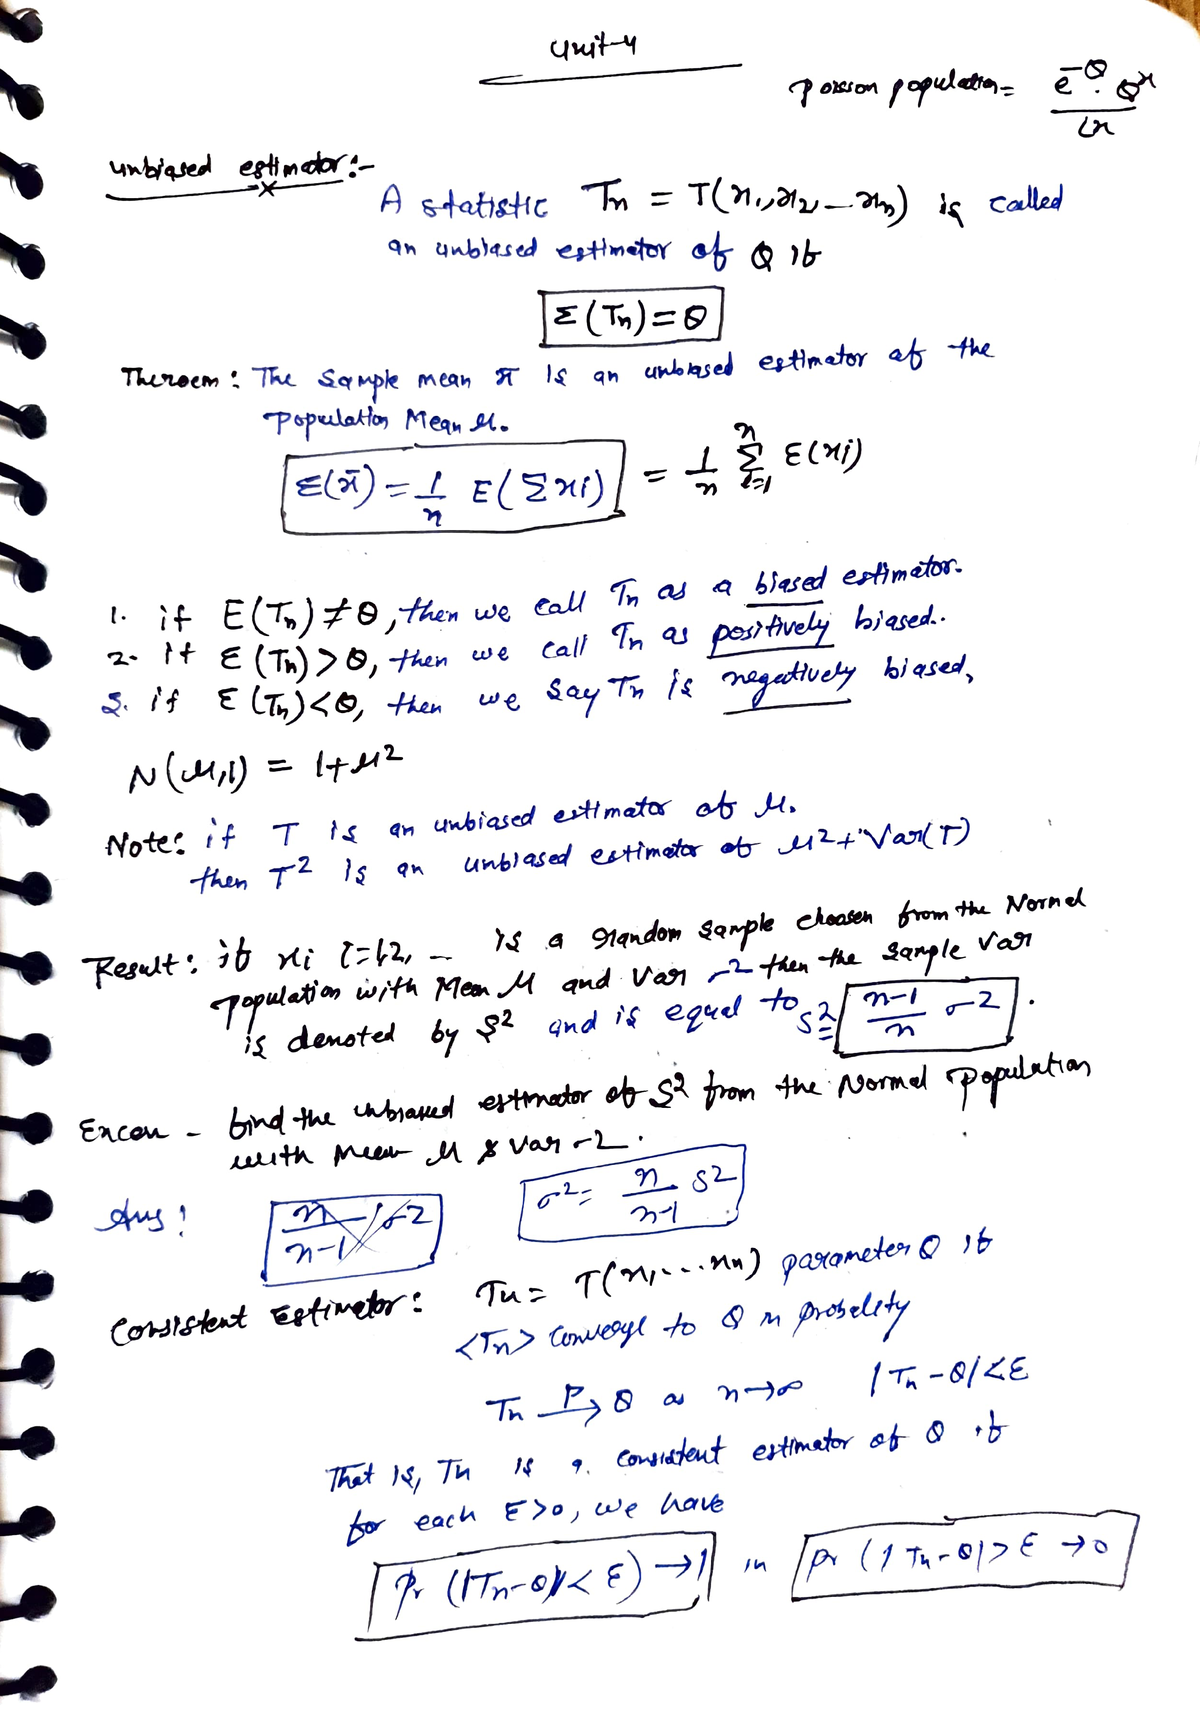 Unit-4
Poisson population = e^-θ . θ^x / ⌊x
Unbiased estimator :-
A statistic Tn = T(x1, x2 — xn) is called
an unbiased estimator of θ if
E(Tn) = θ
Theroem : The Sample mean x̄ is an unbiased estimator of the
Population Mean μ.
E(x̄) = 1/n E(Σxi) = 1/n Σ_{i=1}^{n} E(xi)
1. if E(Tn) ≠ θ, then we call Tn as a biased estimator.
2. if E(Tn) > θ, then we call Tn as positively biased..
3. if E(Tn) < θ, then we say Tn is negatively biased,
N(μ,1) = 1+μ2
Note: if T is an unbiased estimator of μ.
then T2 is an unbiased estimator of μ2+Var(T)
Result : if xi i=1,2, — is a random sample choosen from the Normal
population with Mean μ and Var σ2 then the sample Var
is denoted by S2 and is equal to S2 = n-1/n σ2 .
- find the unbiased estimator of S2 from the Normal Population
with Mean μ & Var σ2.
Ans: n/n-1 σ2 σ2 = n/n-1 S2
Consistent Estimator : Tn = T(x1,...xn) parameter θ if
<Tn> converge to θ in probelity
Tn P→ θ as n→∞ |Tn-θ|<ε
That is, Tn is a consistent estimator of θ if
for each ε>0, we have
Pr (|Tn-θ|<ε) →1 in Pr (|Tn-θ|>ε →0